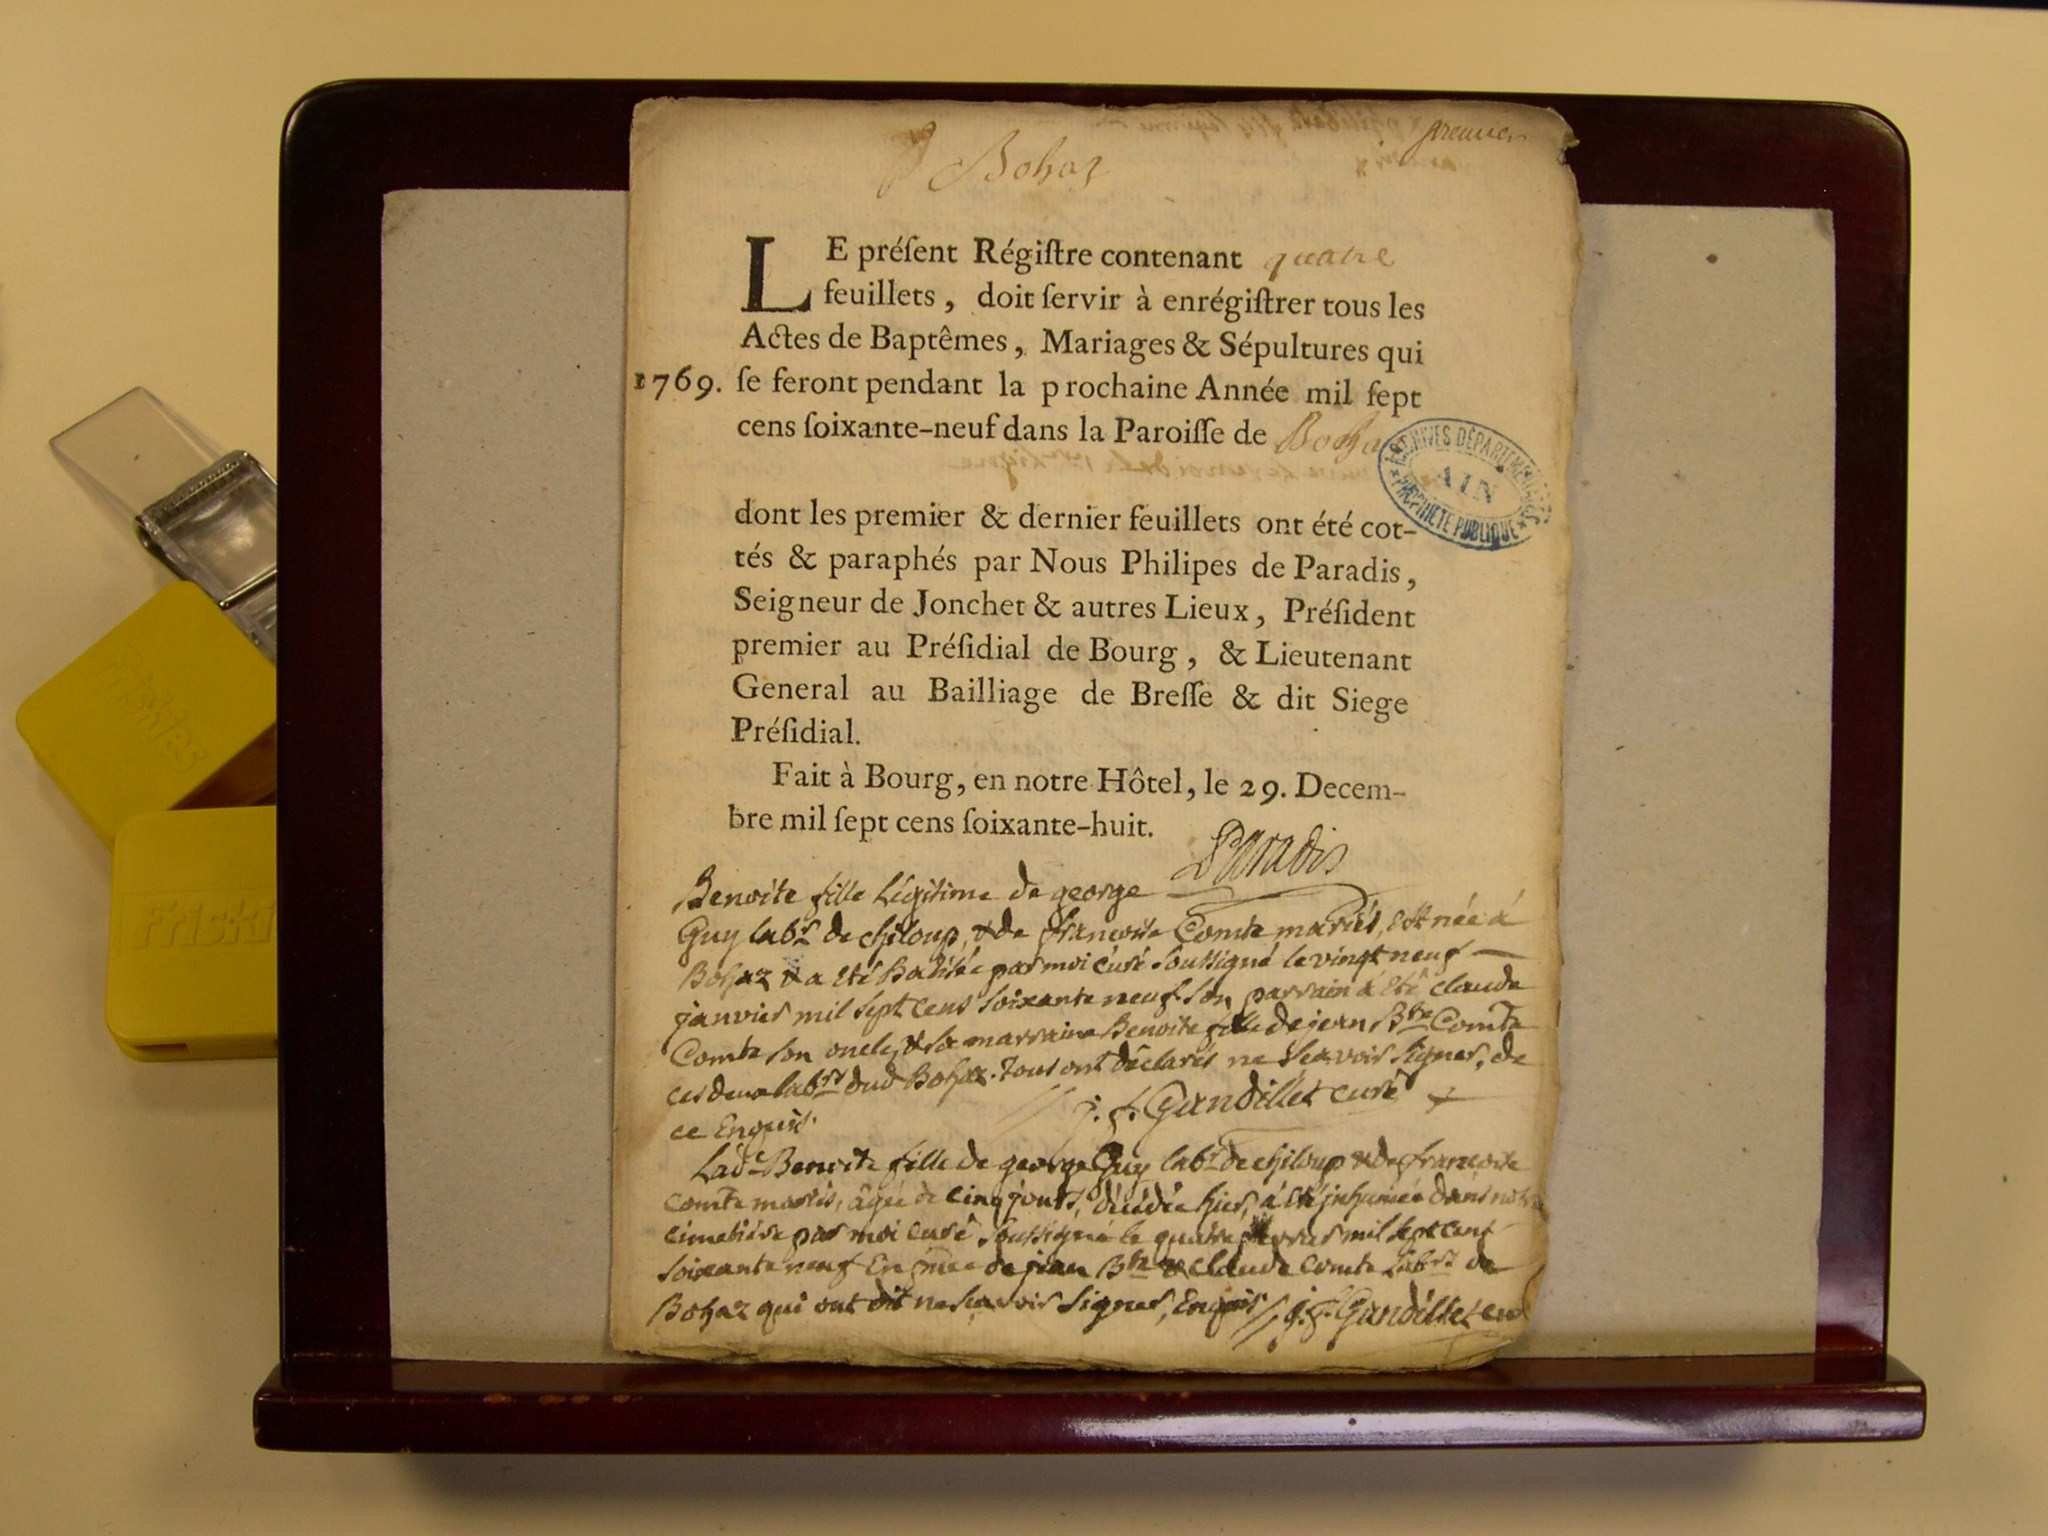 premier
Bohaz
LE préſent Régiſtre contenant quatre
feuillets, doit ſervir à enrégiſtrer tous les
Actes de Baptêmes, Mariages & Sépultures qui
1769. ſe feront pendant la prochaine Année mil ſept
cens ſoixante-neuf dans la Paroiſſe de Boha
ARCHIVES DÉPARTEMENTALES
AIN
PROPRIÉTÉ PUBLIQUE
dont les premier & dernier feuillets ont été cot-
tés & paraphés par Nous Philipes de Paradis,
Seigneur de Jonchet & autres Lieux, Préſident
premier au Préſidial de Bourg, & Lieutenant
General au Bailliage de Breſſe & dit Siege
Préſidial.
Fait à Bourg, en notre Hôtel, le 29. Decem-
bre mil ſept cens ſoixante-huit.
Paradis
Benoite fille légitime de george
Guy labr de chiloup, & de françoise Comte mariés, est née à
Bohaz & a été batisée par moi curé soussigné le vingt neuf
janvier mil sept cens soixante neuf son parrain a été claude
Comte son oncle, & sa marraine Benoite fille de jean Bte Comte
ces deux labrs dud Bohaz. tous ont déclarés ne sçavoir signer, de
ce Enquis. j. f. Gandillet curé
Lade Benoite fille de george Guy labr de chiloup & de françoise
comte mariés, âgée de cinq jours, décédée hier, a été inhumée dans notre
cimetière par moi curé soussigné le quatre mil sept cent
soixante neuf En pnce de jean Bte & claude comte labrs de
Bohaz qui ont dit ne sçavoir signer, Enquis j. f. Gandillet curé
Friskies
Friski